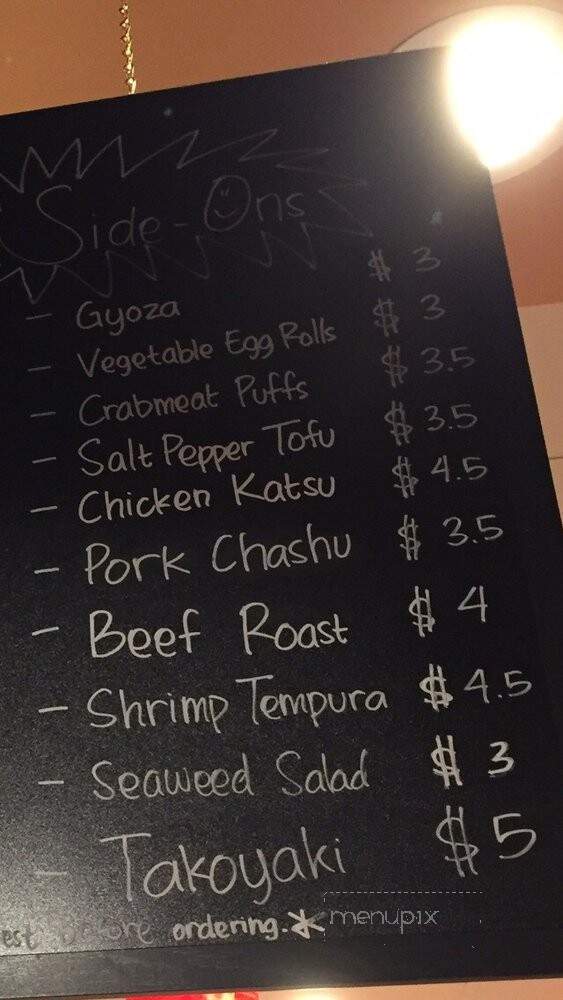 Side-Ons
- Gyoza $ 3
- Vegetable Egg Rolls $ 3
- Crabmeat Puffs $ 3.5
- Salt Pepper Tofu $ 3.5
- Chicken Katsu $ 4.5
- Pork Chashu $ 3.5
- Beef Roast $ 4
- Shrimp Tempura $ 4.5
- Seaweed Salad $ 3
- Takoyaki $ 5
before ordering.*
menupix